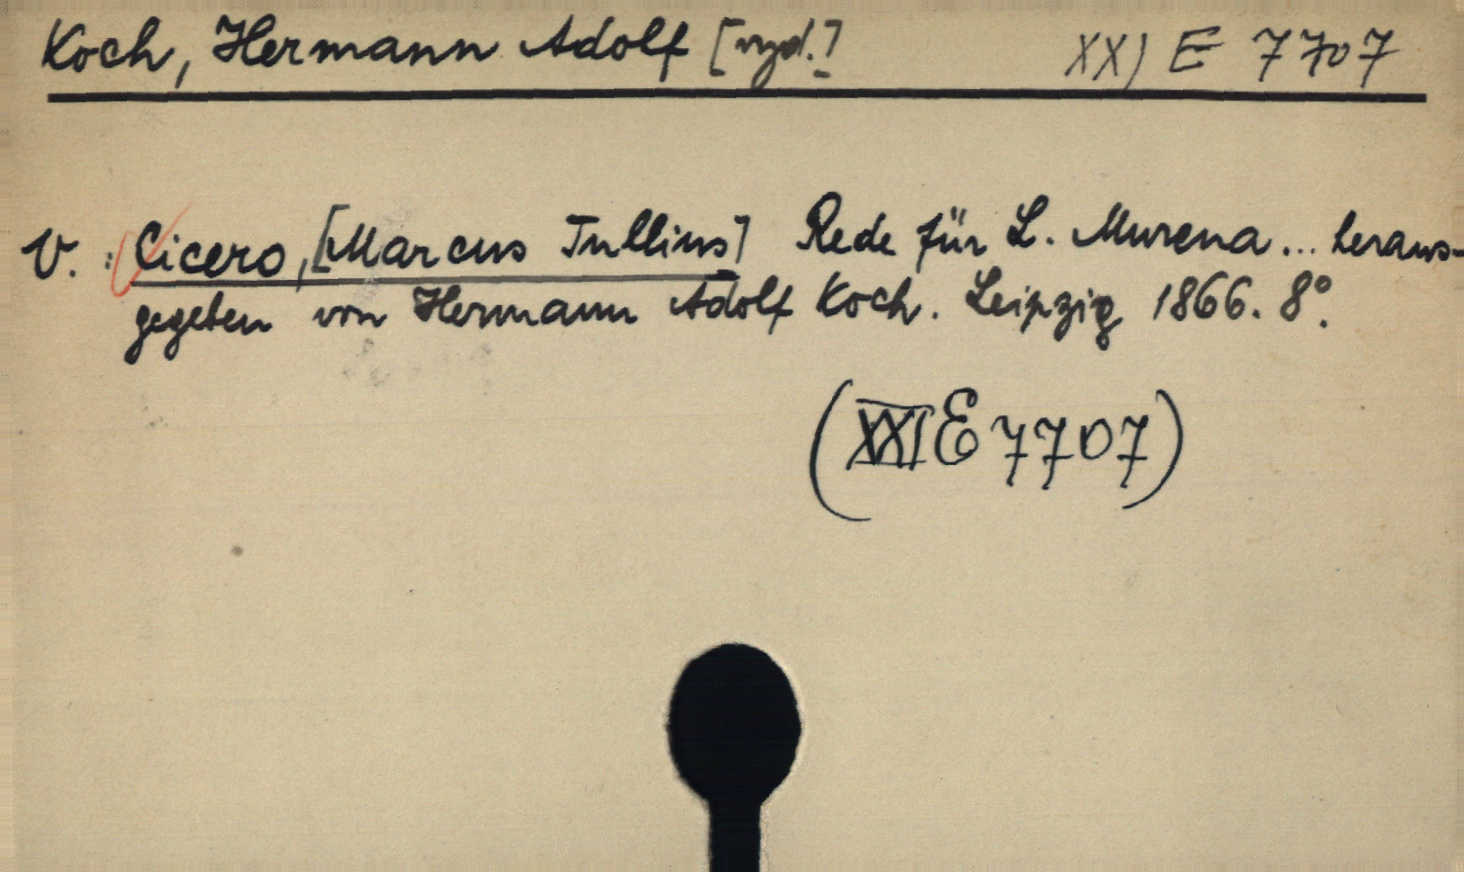 Koch, Hermann Adolf [wyd.] XXI E 7707
V.: Cicero, [Marcus Tullius] Rede für L. Murena... heraus-
gegeben von Hermann Adolf Koch. Leipzig 1866. 8°.
(XXI E 7707)